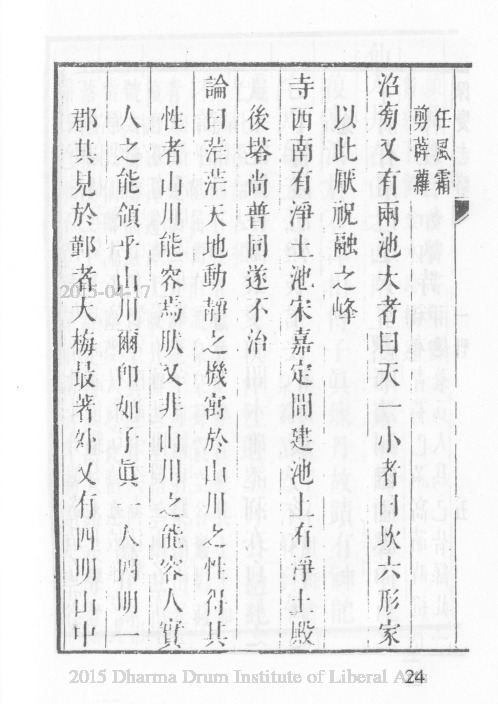 任風霜
剪薜蘿
沼旁又有兩池大者曰天一小者曰坎六形家
以此厭祝融之峰
寺西南有淨土池宋嘉定間建池上有淨土殿
後塔尚普同遂不治
論曰茫茫天地動靜之機寓於山川之性得其
性者山川能容焉狀又非山川之能容人實
人之能領乎山川爾卽如子眞一人四明一
郡其見於鄞者大梅最著外又有四明山中
2015-04-17
2015 Dharma Drum Institute of Liberal Arts
24